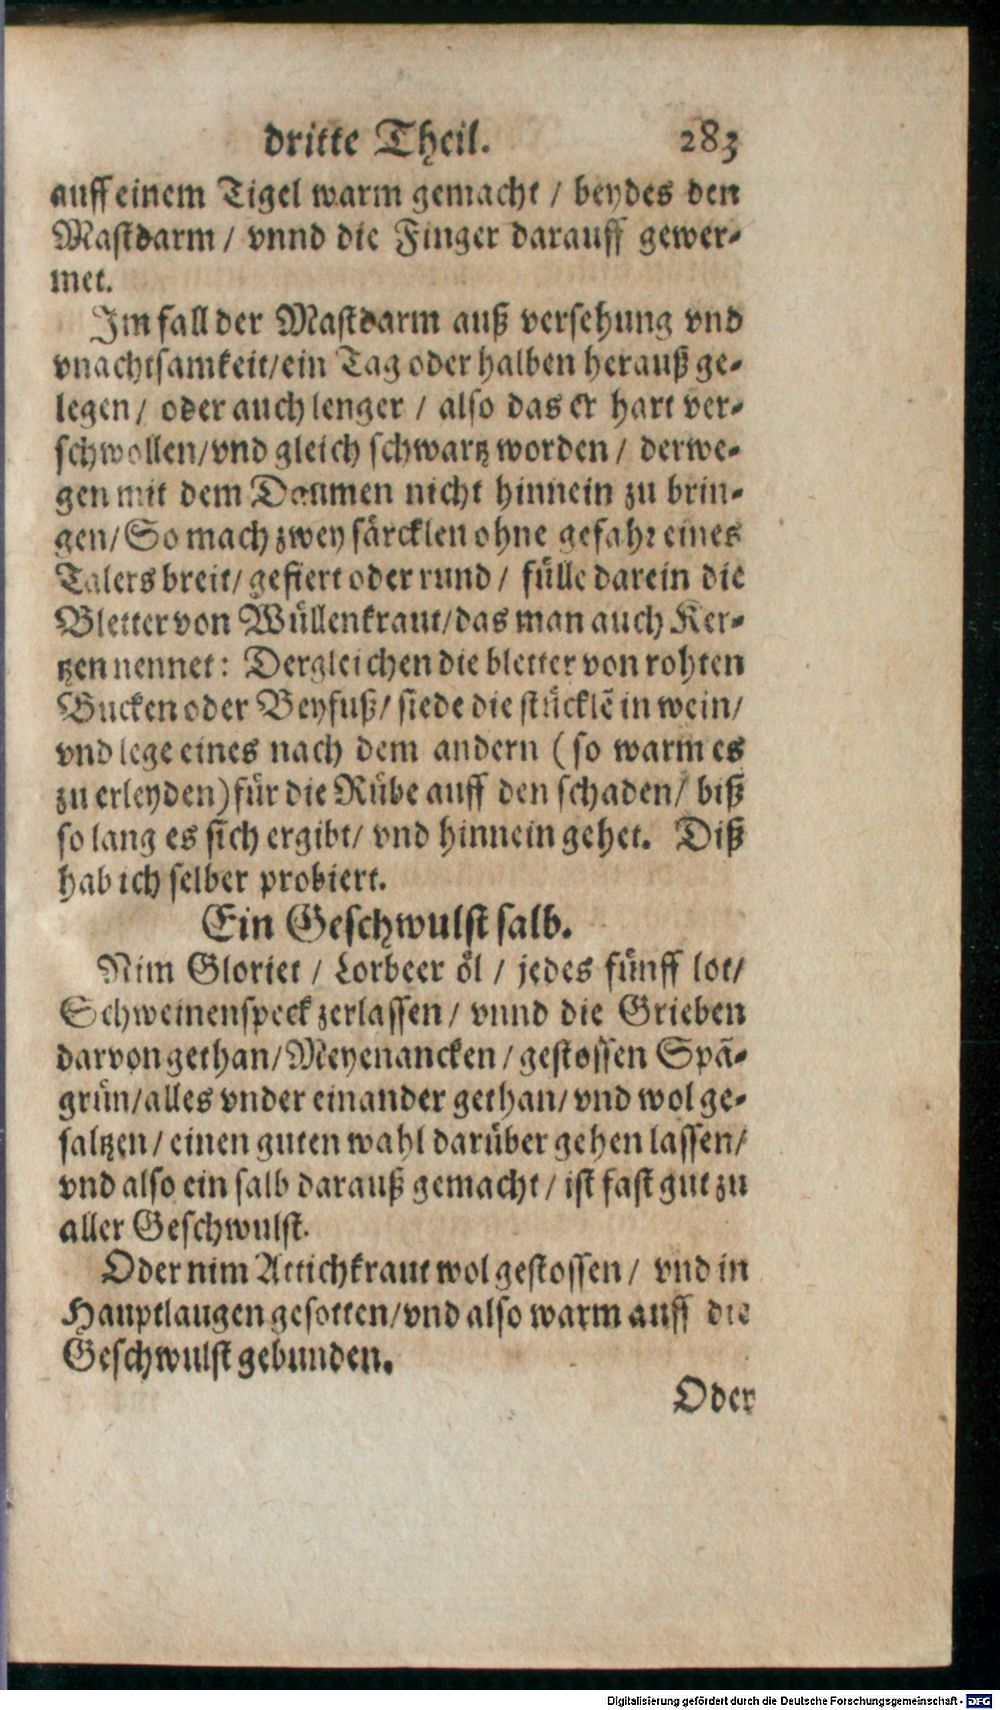 dritte Theil. 283
auff einem Tigel warm gemacht / beydes den
Mastdarm / vnnd die Finger darauff gewer-
met.
Im fall der Mastdarm auß versehung vnd
vnachtsamkeit/ein Tag oder halben herauß ge-
legen / oder auch lenger / also das er hart ver-
schwollen/vnd gleich schwartz worden / derwe-
gen mit dem Daumen nicht hinnein zu brin-
gen/So mach zwey särcklen ohne gefahr eines
Talers breit/gefiert oder rund / fülle darein die
Bletter von Wüllenkraut/das man auch Ker-
tzen nennet: Dergleichen die bletter von rohten
Bucken oder Beyfuß/ siede die stücklē in wein/
vnd lege eines nach dem andern (so warm es
zu erleyden) für die Rübe auff den schaden/ biß
so lang es sich ergibt/ vnd hinnein gehet. Diß
hab ich selber probiert.
Ein Geschwulst salb.
Nim Gloriet / Lorbeer öl / jedes fünff lot/
Schweinenspeck zerlassen / vnnd die Grieben
darvon gethan/Meyenancken / gestossen Spā-
grün/alles vnder einander gethan/ vnd wol ge-
saltzen / einen guten wahl darüber gehen lassen/
vnd also ein salb darauß gemacht / ist fast gut zu
aller Geschwulst.
Oder nim Attichkraut wol gestossen / vnd in
Hauptlaugen gesotten/vnd also warm auff die
Geschwulst gebunden.
Oder
Digitalisierung gefördert durch die Deutsche Forschungsgemeinschaft - DFG